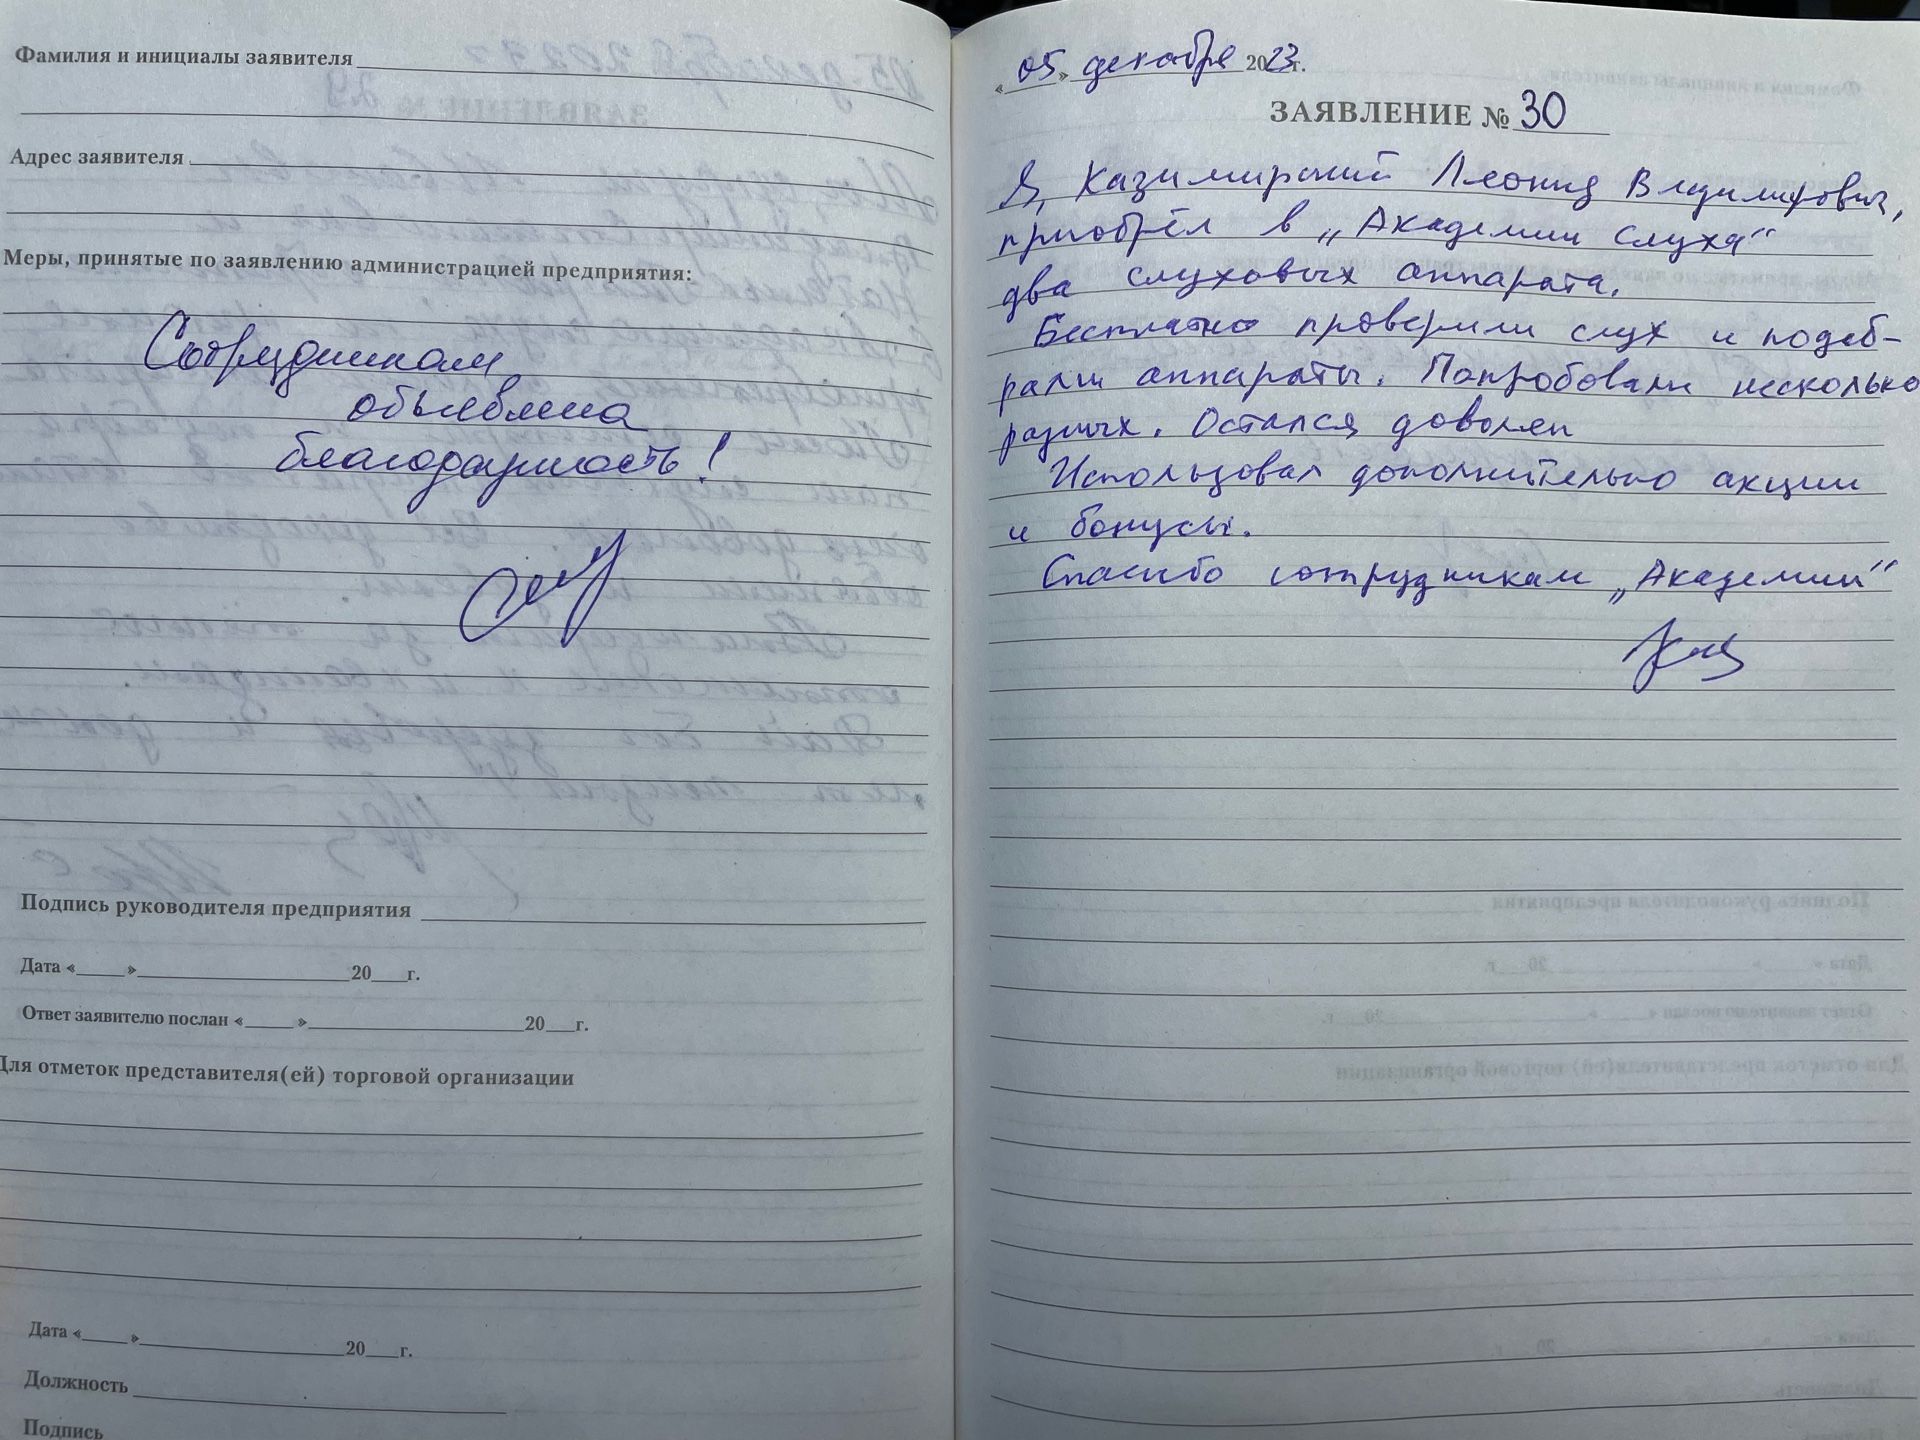 Фамилия и инициалы заявителя
Адрес заявителя
Меры, принятые по заявлению администрацией предприятия:
Сотрудникам
объявлена
благодарность!
Подпись руководителя предприятия
Дата «____»____________20___г.
Ответ заявителю послан «____»____________20___г.
Для отметок представителя(ей) торговой организации
Дата «____»____________20___г.
Должность
Подпись
«05» декабря 2023г.
ЗАЯВЛЕНИЕ № 30
Я, Казимирский Леонид Владимирович,
приобрёл в „Академии слуха“
два слуховых аппарата.
Бесплатно проверили слух и подоб-
рали аппараты. Попробовали несколько
разных. Остался доволен
Использовал дополнительно акции
и бонусы.
Спасибо сотрудникам „Академии“